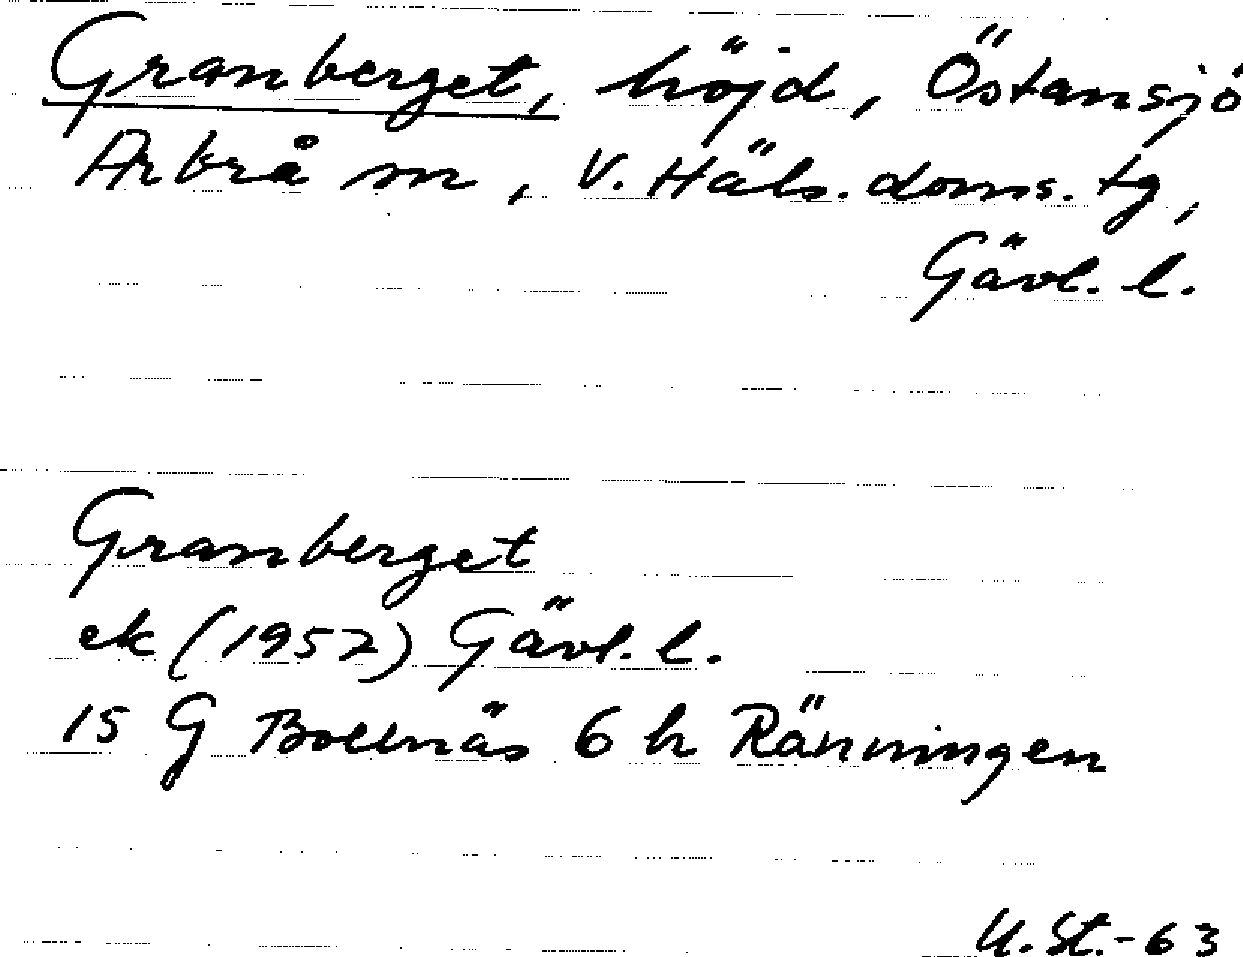 Granberget, höjd, Östansjö
Arbrå sn, V. Häls. doms. tg,
Gävl. l.
Granberget
ek (1952) Gävl. l.
15 G Bollnäs 6 h Ränningen
U. St.-63